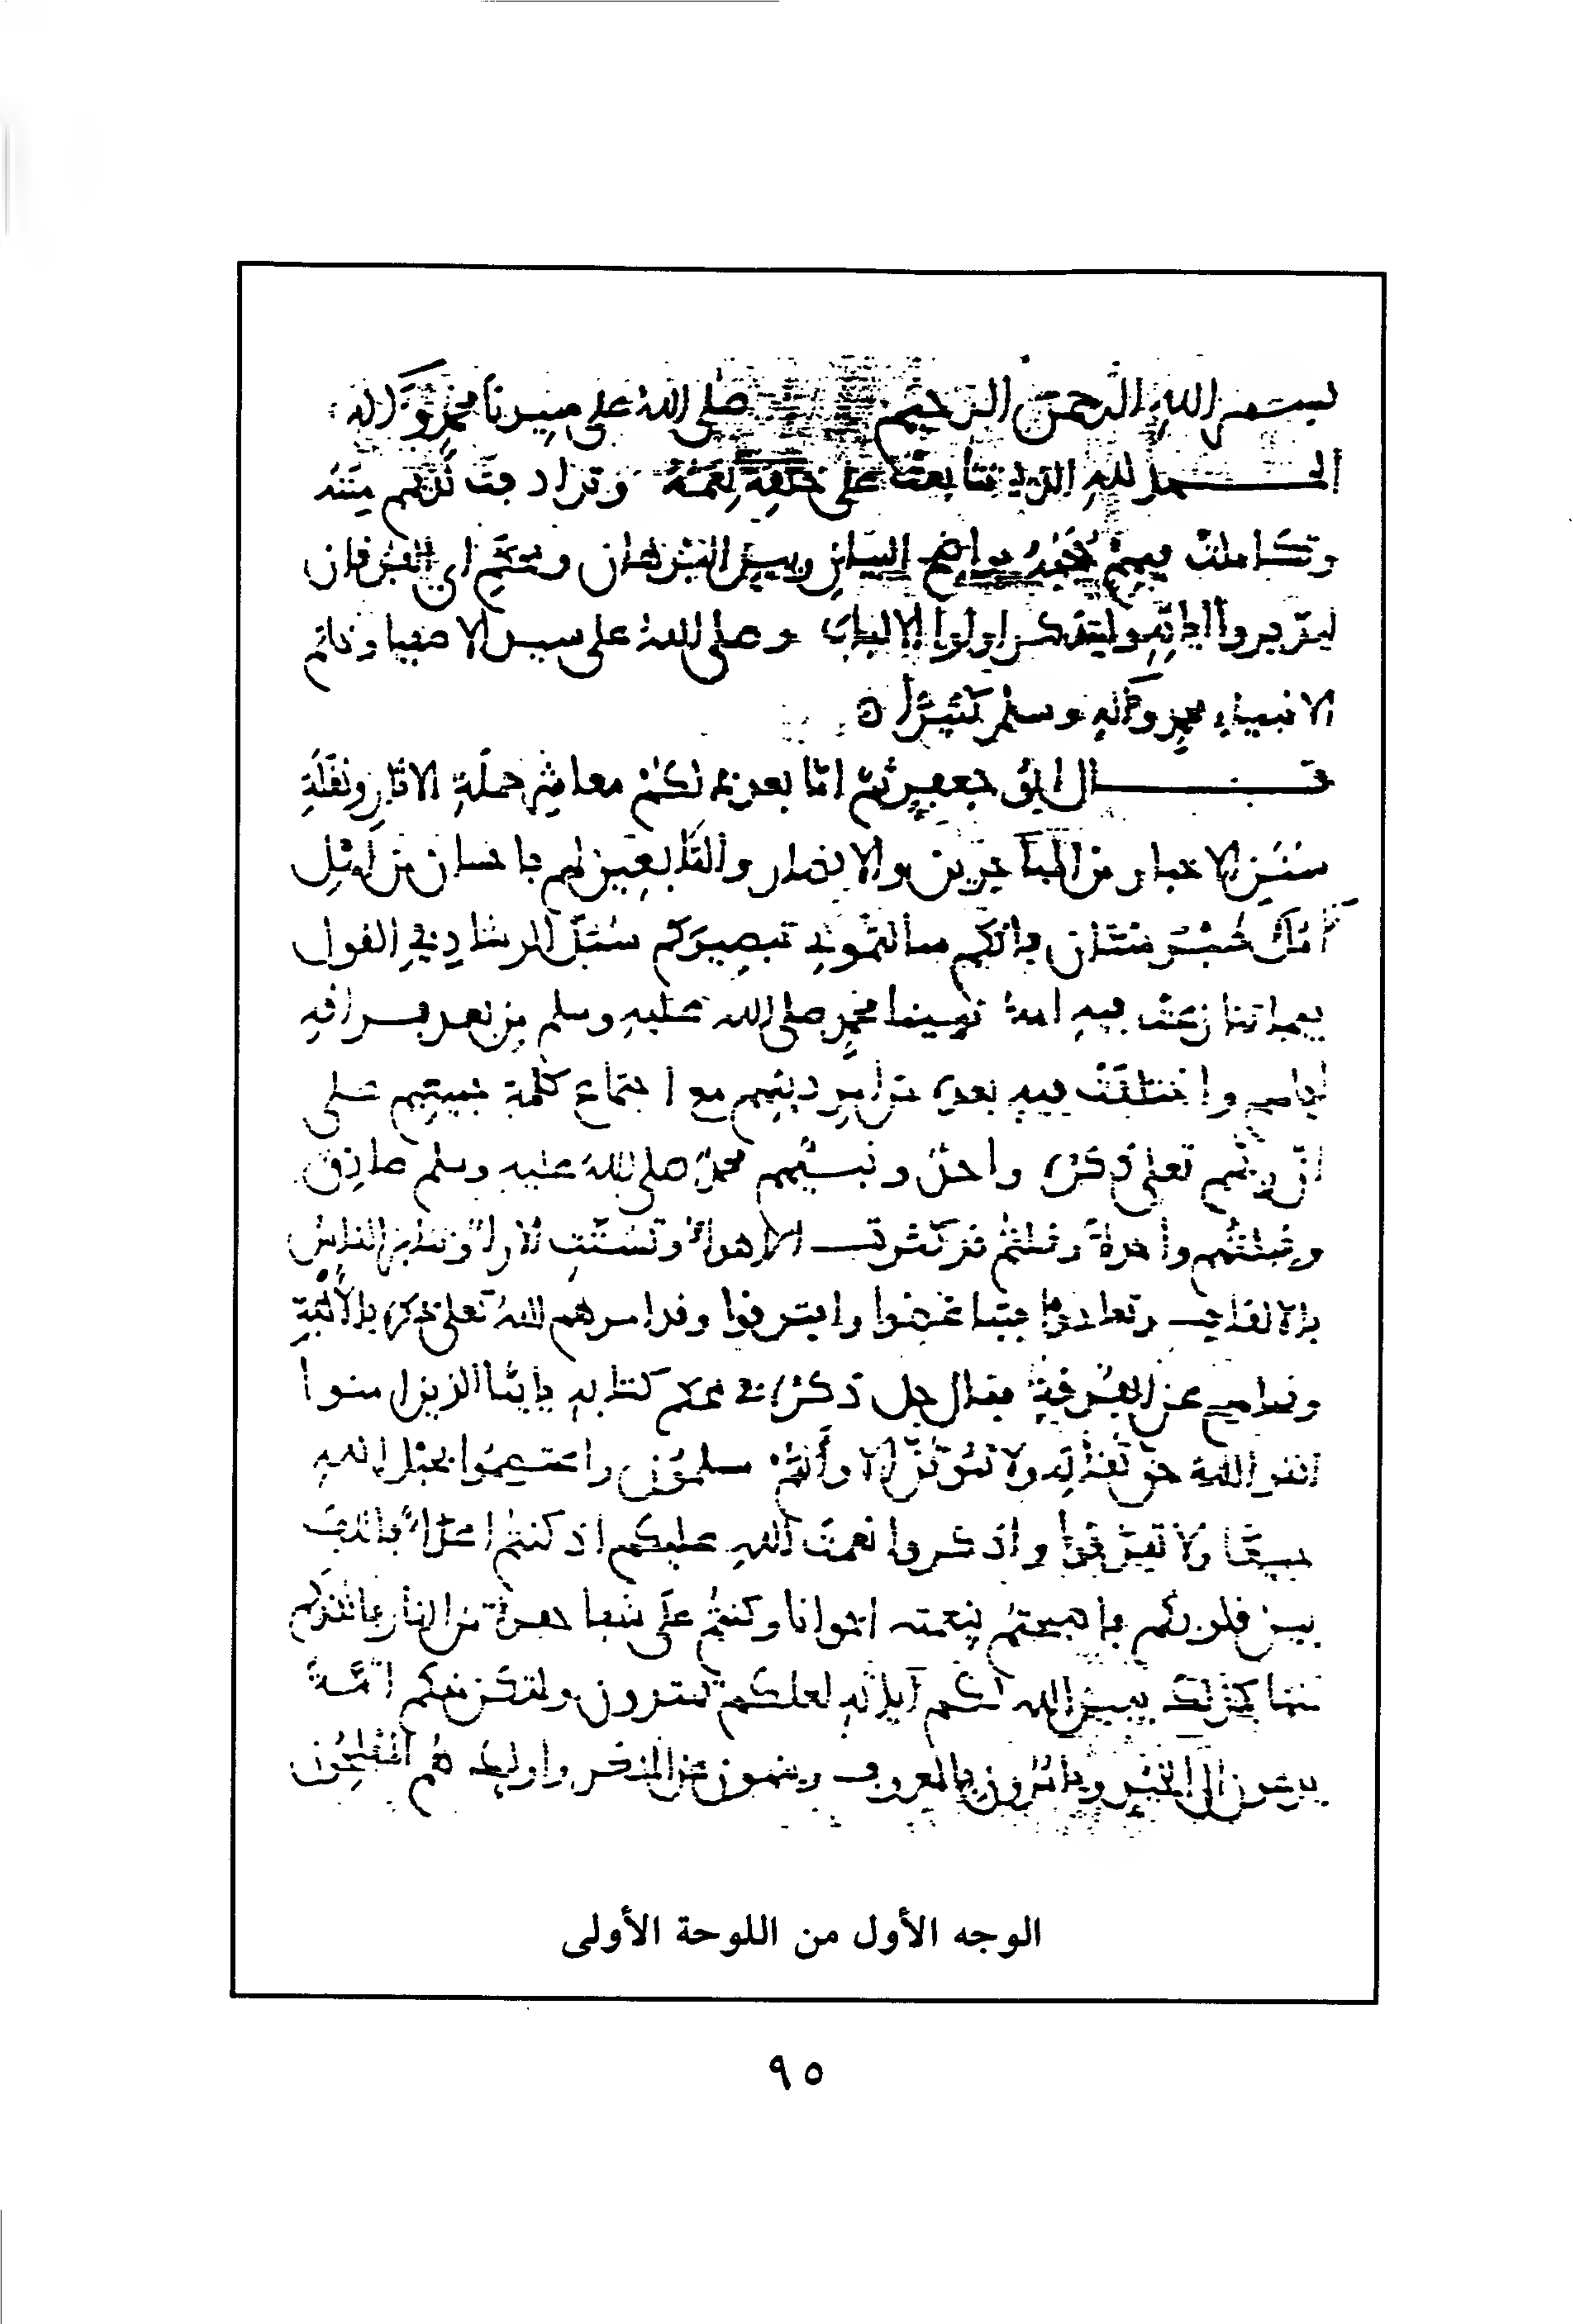 بسم الله الرحمن الرحيم صلى الله على سيدنا محمد وآله
الحمد لله الذي تتابعت على خلقه نعمه وترادفت لديهم مننه
وتكاملت فيهم حججه بواضح البيان وبين البرهان ومحكم آي الفرقان
ليدبروا آياته وليتذكر اولوا الالباب وصلى الله على سيد الاصفياء وخاتم
الانبياء محمد وآله وسلم كثيرا
قال ابو جعفر ثم امّا بعد لكم معاشر حملة الآثار ونقلة
سنن الاخبار من المهاجرين والانصار والتابعين لهم باحسان من اهل
فانكم سالتموني تبصيركم سبل الرشاد في القول
فيما تنازعت فيه امة نبينا محمد صلى الله عليه وسلم من بعد فراقه
اياهم واختلفت فيه بعده من امر دينهم مع اجتماع كلمة جميعهم على
انّ ربهم تعلى ذكره واحد ونبيّهم محمد صلى الله عليه وسلم صادق
وقبلتهم واحدة وقلتم قد كثرت الاهواء وتشتت الاراء وتنابز الناس
بالالقاب وتعادوا فتباغضوا وافترقوا وقد امرهم الله تعلى ذكره بالألفة
ونهاهم عن الفرقة فقال جل ذكره في محكم كتابه يايها الذين امنوا
اتقوا الله حق تقاته ولا تموتن الا وأنتم مسلمون واعتصموا بحبل الله
جميعا ولا تفرقوا واذكروا نعمت الله عليكم اذ كنتم اعداء فالف
بين قلوبكم فاصبحتم بنعمته اخوانا وكنتم على شفا حفرة من النار فانقذكم
منها كذلك يبين الله لكم آياته لعلكم تهتدون ولتكن منكم امة
يدعون الى الخير ويامرون بالمعروف وينهون عن المنكر واوليك هم المفلحون
الوجه الأول من اللوحة الأولى
٩٥